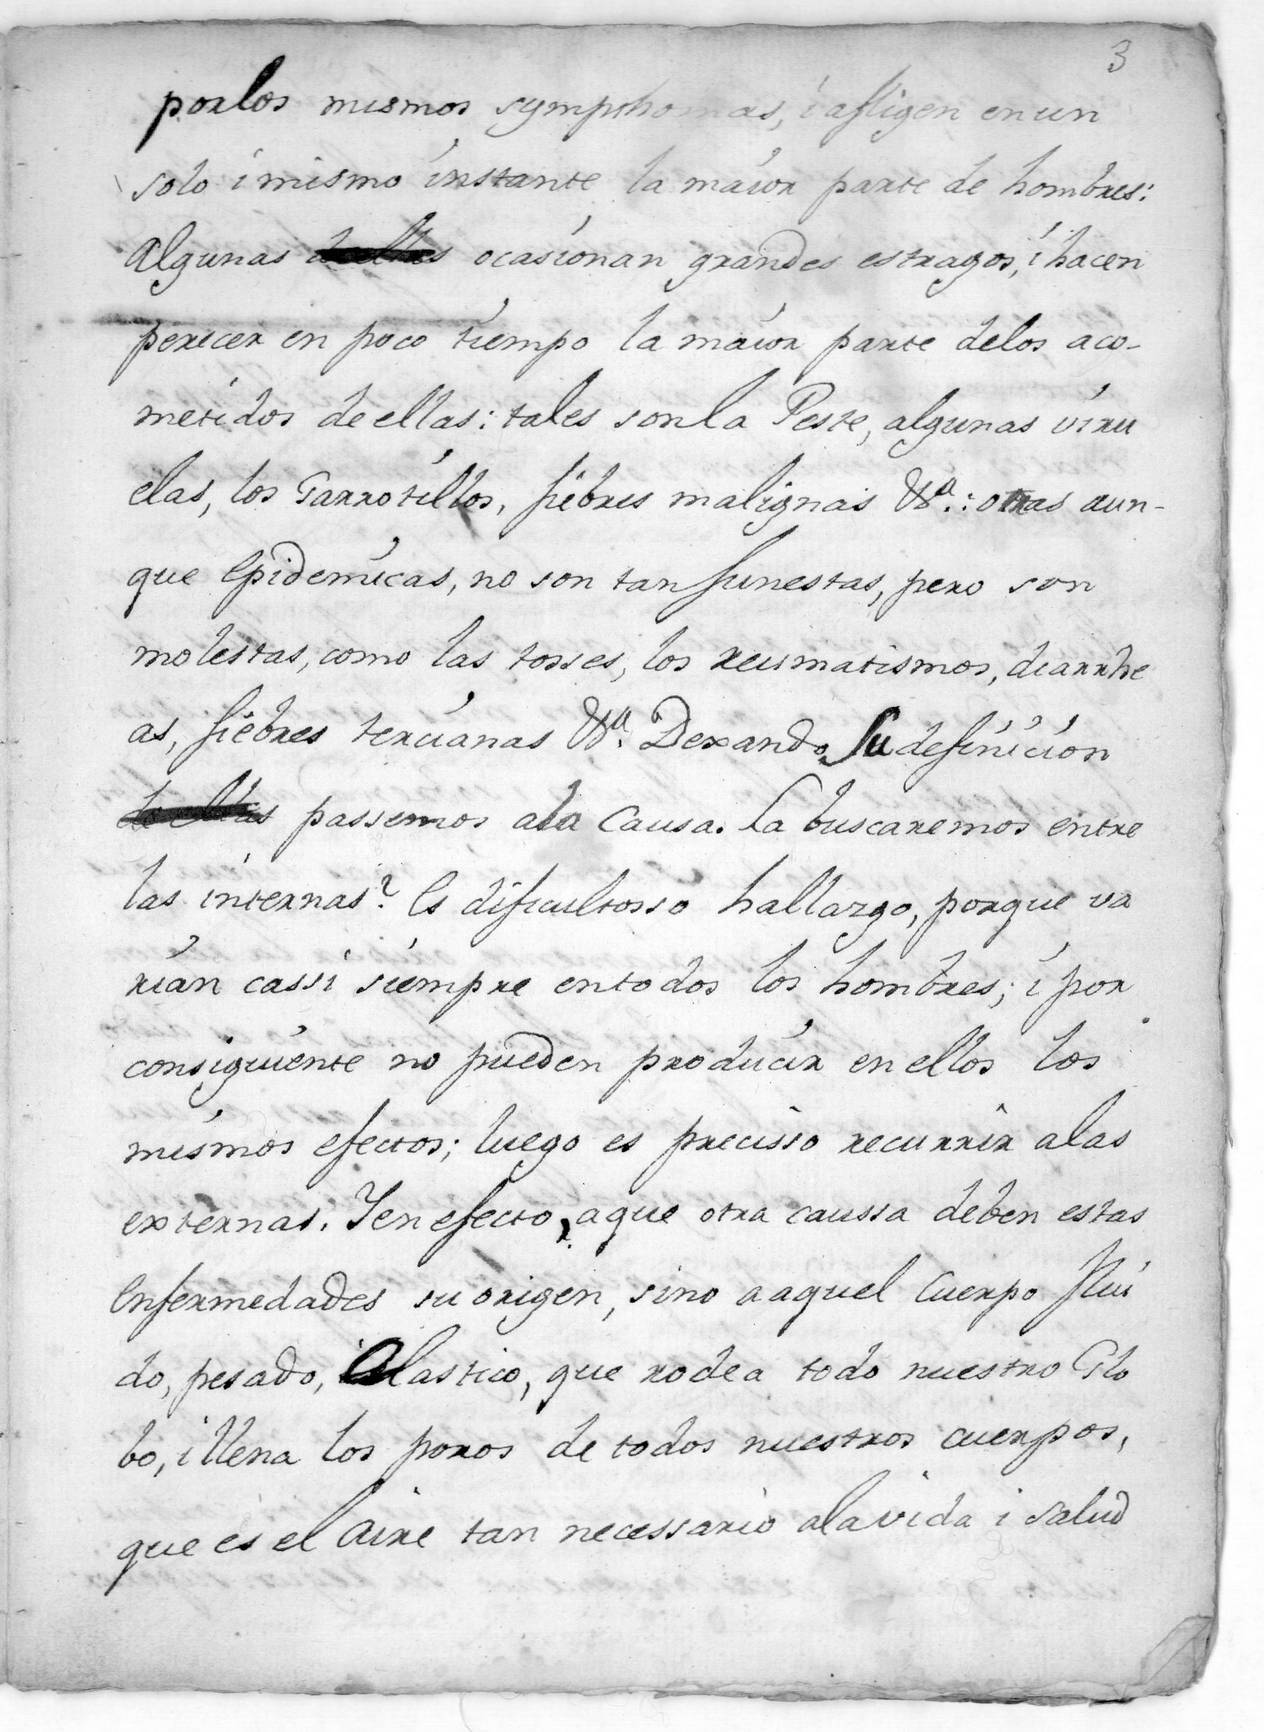 3
porlos mismos symphomas, i afligen en un
solo i mismo instante la maior parte de hombres:
Algunas de ellas ocasionan grandes estragos, i hacen
perecer en poco tiempo la maior parte delos aco-
metidos de ellas: tales son la Peste, algunas viru
elas, los Garrotillos, fiebres malignas &a.: otras aun-
que Epidemicas, no son tan funestas, pero son
molestas, como las tosses, los reumatismos, diarrhe
as, fiebres tercianas &a. Dexando su definicion
de ellas passemos ala Causa. La buscaremos entre
las internas? Es dificultosso hallazgo, porque va
rian cassi siempre entodos los hombres; i por
consiguiente no pueden producir en ellos los
mismos efectos; luego es precisso recurrir alas
externas. Y en efecto, aque otra caussa deben estas
Enfermedades su origen, sino a aquel Cuerpo flui
do, pesado, i elastico, que rodea todo nuestro Glo
bo, i llena los poros de todos nuestros cuerpos,
que es el Aire tan necessario ala vida i salud